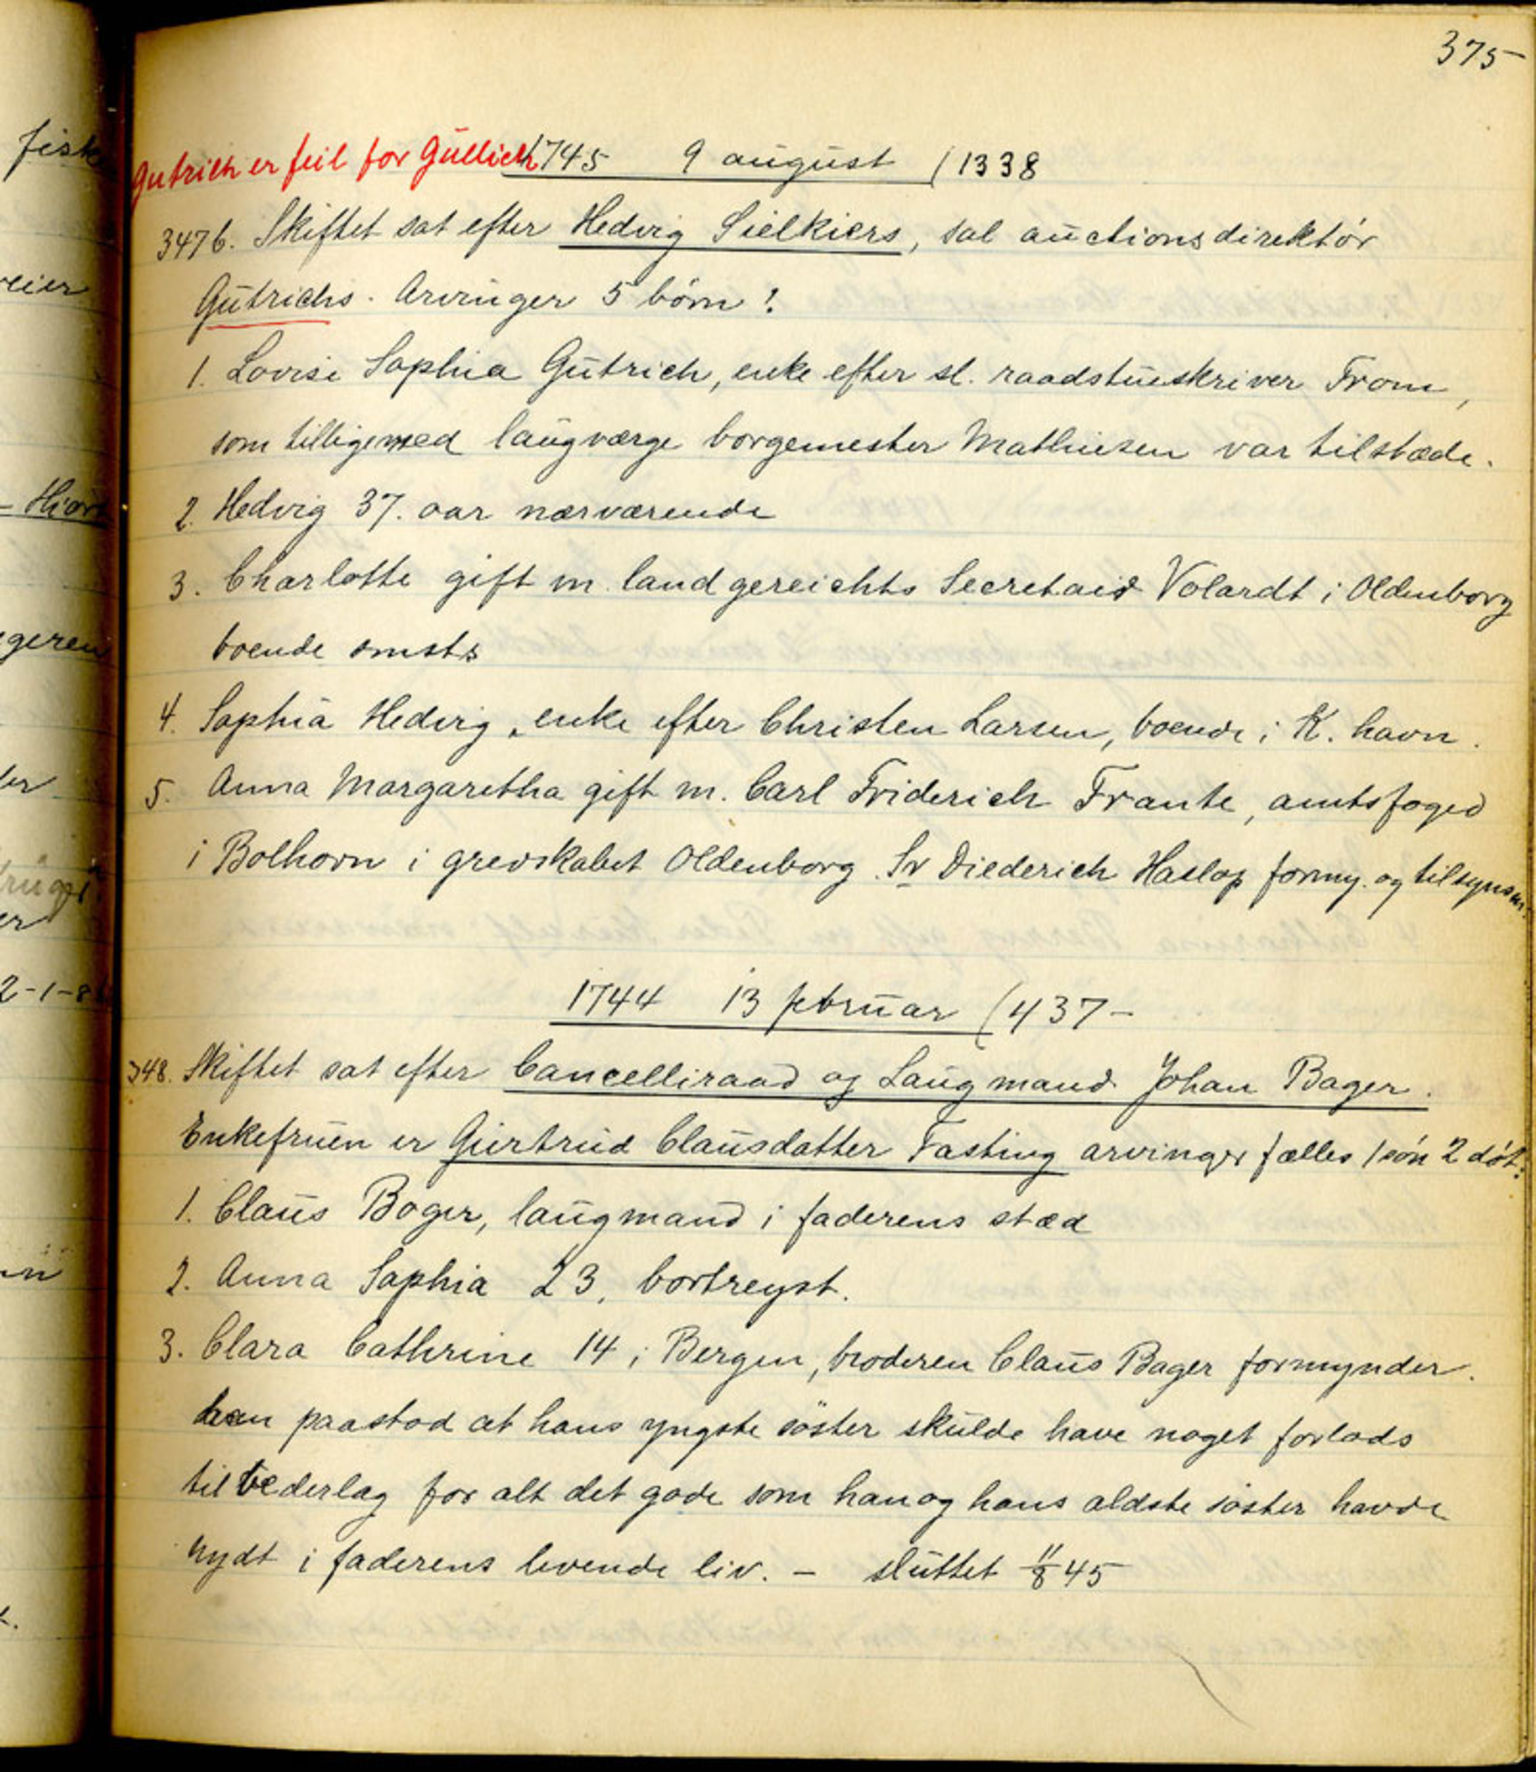 375
Gutrich er feil for Güllich
1745 9 august (1338
347b. Skiftet sat efter Hedvig Sielkiers, sal auctionsdirektør
Gütrichs. Arvinger 5 børn:
1. Lovise Sophia Gütrich, enke efter sl. raadstueskriver From,
som tilligemed laugværge borgemester Mathiesen var tilstæde.
2. Hedvig 37. aar nærværende
3. Charlotte gift m. landgereichts Secretair Volardt i Oldenborg
boende
4. Sophia Hedvig, enke efter Christen Larsen, boende i K.havn.
5. Anna Margaretha gift m. Carl Friderich Trante, amtsfoged
i Bolhorn i grevskabet Oldenborg. Sr Diederich Haslop formy. og tilsynsm.
1744 13 februar (437-
348. Skiftet sat efter Cancelliraad og Laugmand Johan Bager.
Enkefruen er Giertrud Clausdatter Fasting arvinger fælles 1 søn 2 døt:
1. Claus Bager, laugmand i faderens stæd
2. Anna Sophia 23, bortreyst.
3. Clara Cathrine 14 i Bergen, broderen Claus Bager formynder.
han paastod at hans yngste søster skulde have noget forlods
til vederlag for alt det gode som han og hans ældste søster havde
nydt i faderens levende liv. - sluttet 11/8 45